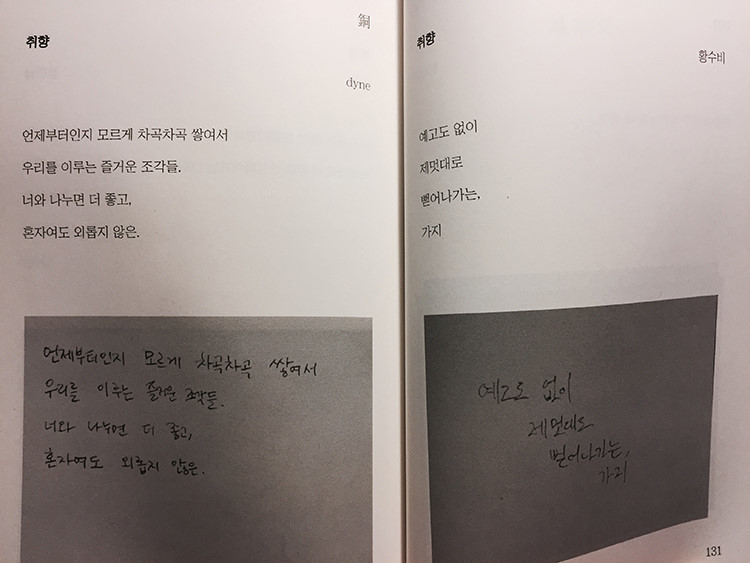 銅
취향
dyne
언제부터인지 모르게 차곡차곡 쌓여서
우리를 이루는 즐거운 조각들.
너와 나누면 더 좋고,
혼자여도 외롭지 않은.
언제부터인지 모르게 차곡차곡 쌓여서
우리를 이루는 즐거운 조각들.
너와 나누면 더 좋고,
혼자여도 외롭지 않은.
취향
황수비
예고도 없이
제멋대로
뻗어나가는,
가지
예고도 없이
제멋대로
뻗어나가는,
가지
131